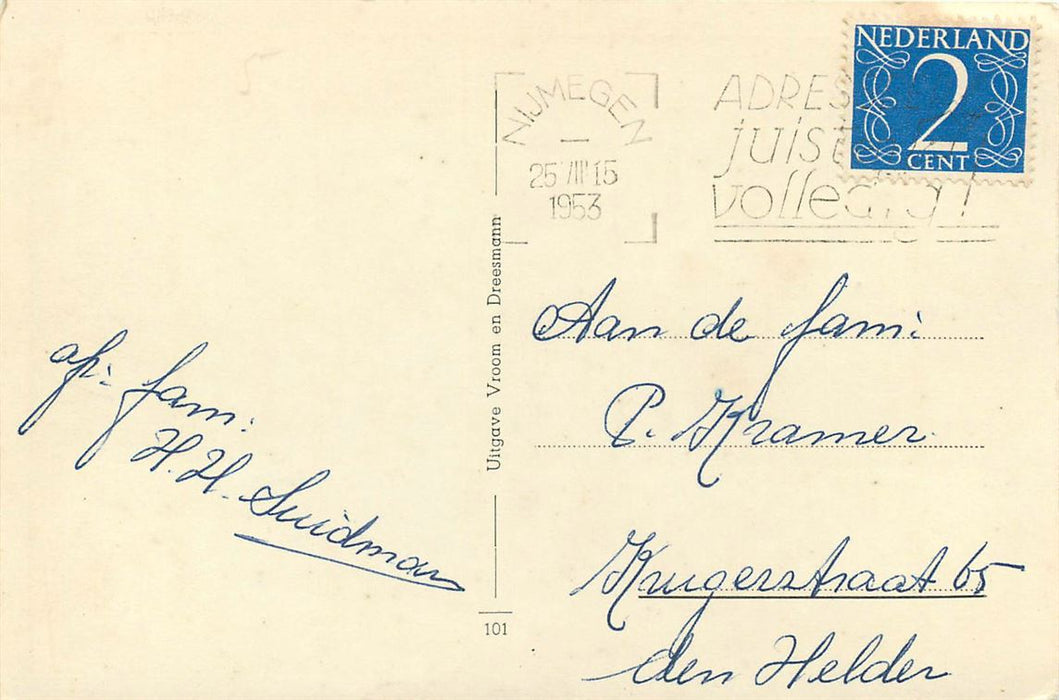 NEDERLAND
2
CENT
NIJMEGEN
25 VIII 15
1953
ADRES
juist
volledig!
Uitgave Vroom en Dreesmann
101
afz: fam:
H.H. Suidman
Aan de fam:
P. Kramer
Krugerstraat 65
den Helder